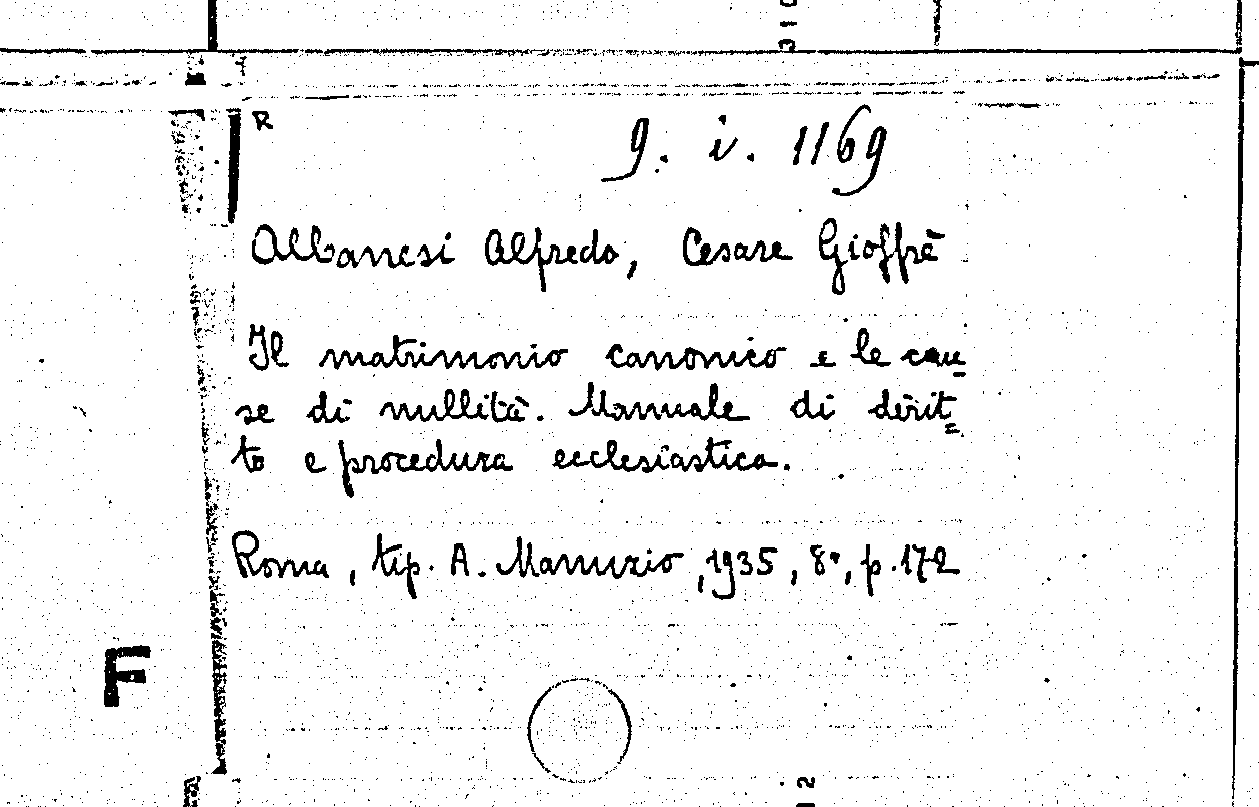 310
R
9. i. 1169
Albanesi Alfredo, Cesare Gioffrè
Il matrimonio canonico e le cau-
se di nullità. Manuale di dirit=
to e procedura ecclesiastica.
Roma, tip. A. Manuzio, 1935, 8°, p. 172
F